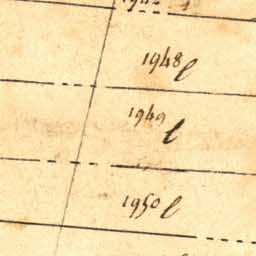 1948 l
1949 l
1950 l